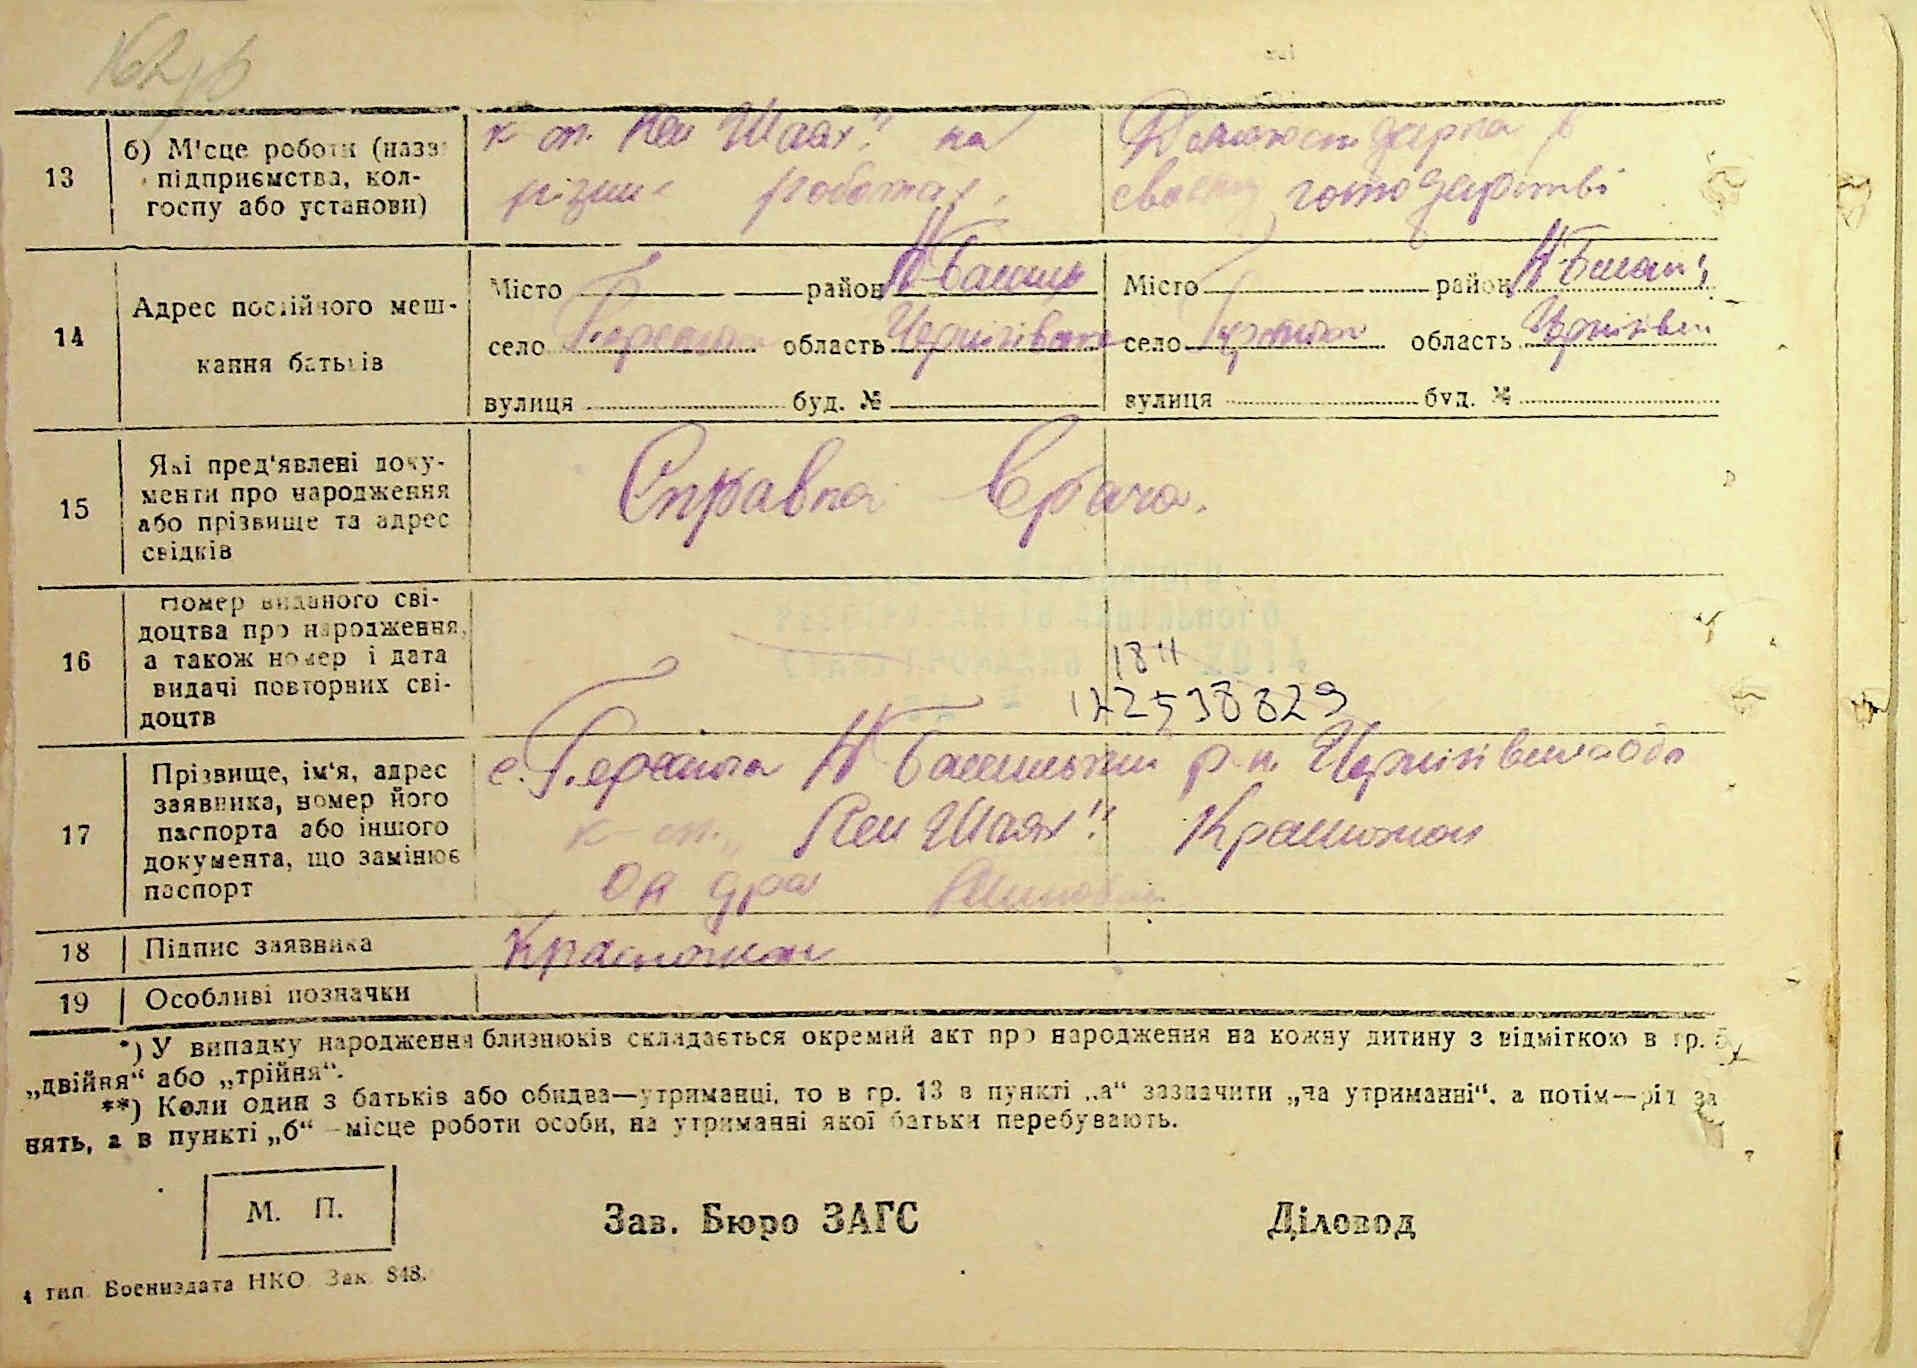 13
б) Місце роботи (назва
підприємства, кол-
госпу або установи)
к-сп. Шлях" на
різних роботах.
Домогосподарка в
своєму господарстві
14
Адрес постійного меш-
кання батьків
Місто район Н Басань
село область Чернігівська
вулиця буд. №
Місто район Н Басань
село область Чернігівська
вулиця буд. №
15
Які пред'явлені доку-
менти про народження
або прізвище та адрес
свідків
Справка Врача.
16
Номер виданого сві-
доцтва про народження,
а також номер і дата
видачі повторних сві-
доцтв
17
Прізвище, ім'я, адрес
заявника, номер його
паспорта або іншого
документа, що замінює
паспорт
с. Н Басанський р-н. Чернігівська обл
к-сп. „ Шлях"
18
Підпис заявника
19
Особливі позначки
*) У випадку народження близнюків складається окремий акт про народження на кожну дитину з відміткою в гр. 5
„двійня“ або „трійня“.
**) Коли один з батьків або обидва—утриманці, то в гр. 13 в пункті „а“ зазначити „на утриманні“, а потім—рід за
нять, а в пункті „б“ —місце роботи особи, на утриманні якої батьки перебувають.
М. П.
Зав. Бюро ЗАГС
Діловод
4 тип. Воениздата НКО. Зак. 848.